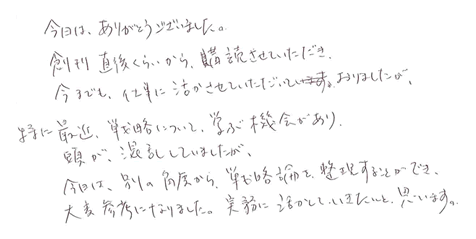 今日は、ありがとうございました。
創刊直後くらいから、購読させていただき、
今までも、仕事に活かさせていただいておりましたが、
特に最近、戦略について、学ぶ機会があり、
頭が、混乱していましたが、
今日は、別の角度から、戦略論を、整理することができ、
大変参考になりました。実務に活かしていきたいと、思います。